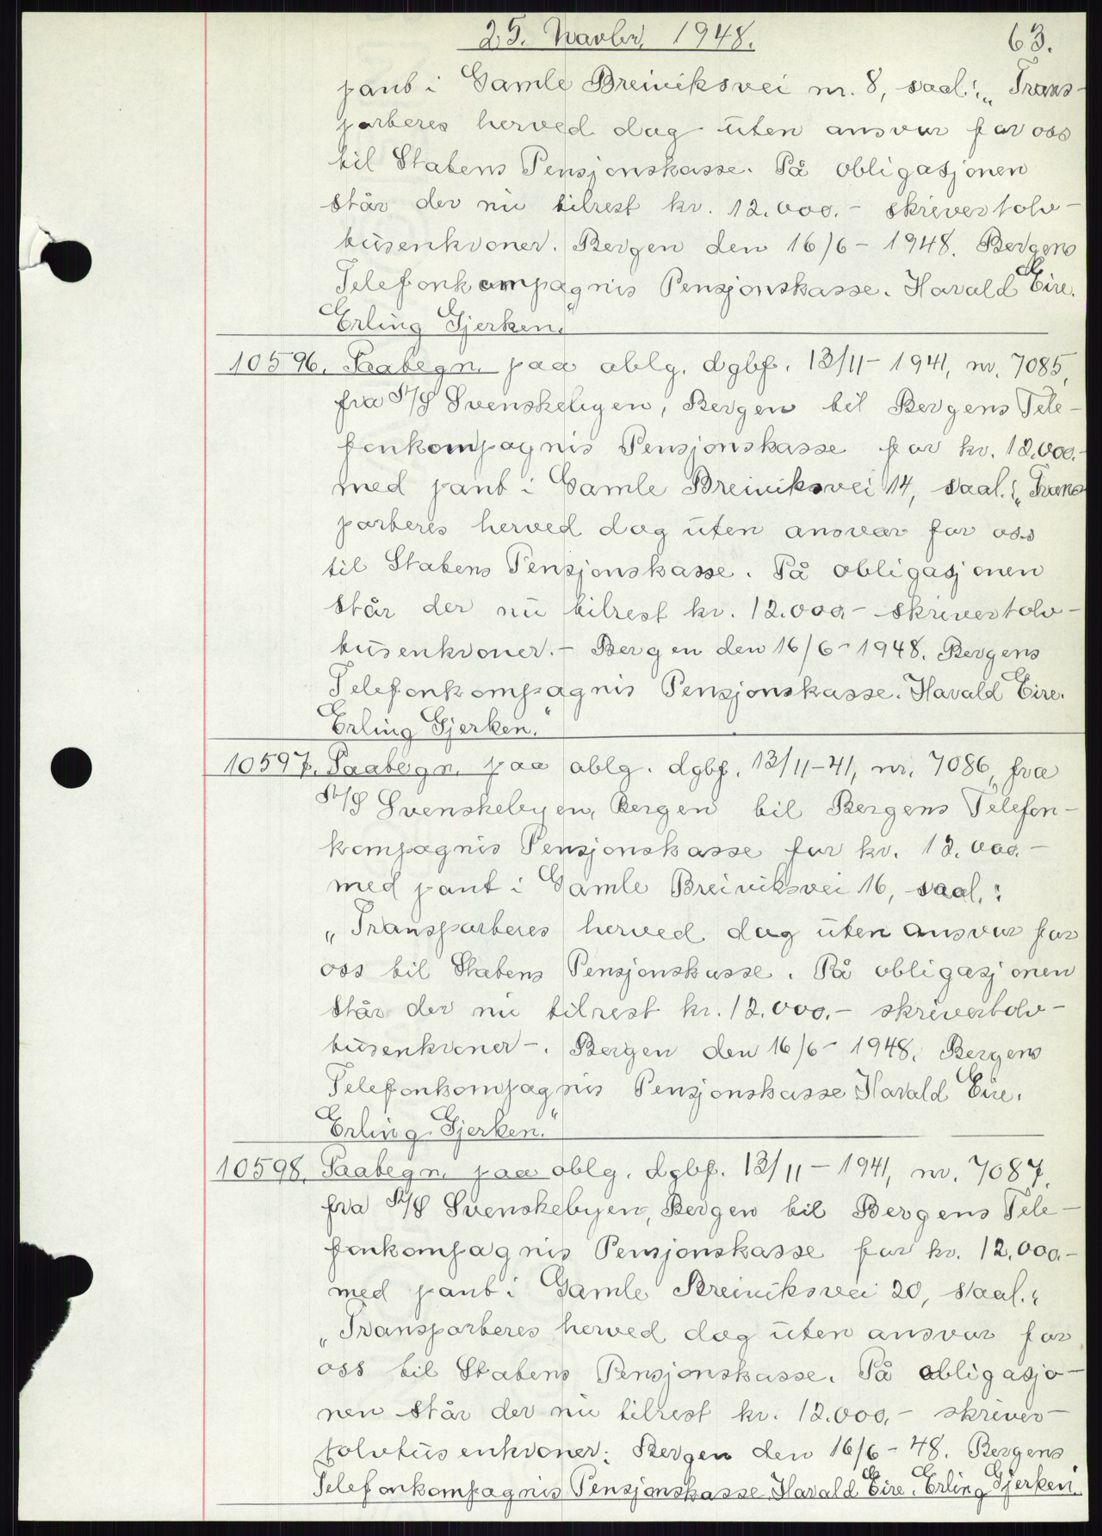 25. Novbr. 1948.
63.
pant i Gamle Breiviksvei nr. 8, saal: „Trans-
porteres herved dog uten ansvar for oss
til Statens Pensjonskasse. På obligasjonen
står der nu tilrest kr. 12.000.- skrivertolv-
tusenkroner. Bergen den 16/6 - 1948. Bergens
Telefonkompagnis Pensjonskasse. Harald Eire.
Erling Gjerken."
10596. Paabegn. paa oblg. dgbf. 13/11 - 1941, nr. 7085,
fra A/S Svenskebyen, Bergen til Bergens Tele-
fonkompagnis Pensjonskasse for kr. 12.000.-
med pant i Gamle Breiviksvei 14, saal.: „Trans
porteres herved dog uten ansvar for oss
til Statens Pensjonskasse. På obligasjonen
står der nu tilrest kr. 12.000.- skrivertolv-
tusenkroner.- Bergen den 16/6 - 1948. Bergens
Telefonkompagnis Pensjonskasse. Harald Eire.
Erling Gjerken."
10597. Paabegn. paa oblg. dgbf. 13/11-41, nr. 7086, fra
A/S Svenskebyen, Bergen til Bergens Telefon-
kompagnis Pensjonskasse for kr. 12.000.-
med pant i Gamle Breiviksvei 16, saal.:
„Transporteres herved dog uten ansvar for
oss til Statens Pensjonskasse. På obligasjonen
står der nu tilrest kr. 12.000.- skrivertolv-
tusenkroner-. Bergen den 16/6 - 1948. Bergens
Telefonkompagnis Pensjonskasse Harald Eire.
Erling Gjerken."
10598. Paabegn. paa oblg. dgbf. 13/11 - 1941, nr. 7087,
fra A/S Svenskebyen, Bergen til Bergens Tele-
fonkompagnis Pensjonskasse for kr. 12.000.-
med pant i Gamle Breiviksvei 20, saal.:
„Transporteres herved dog uten ansvar for
oss til Statens Pensjonskasse. På obligasjo-
nen står der nu tilrest kr. 12.000.- skriver-
tolvtusenkroner: Bergen den 16/6 - 48. Bergens
Telefonkompagnis Pensjonskasse. Harald Eire. Erling Gjerken."